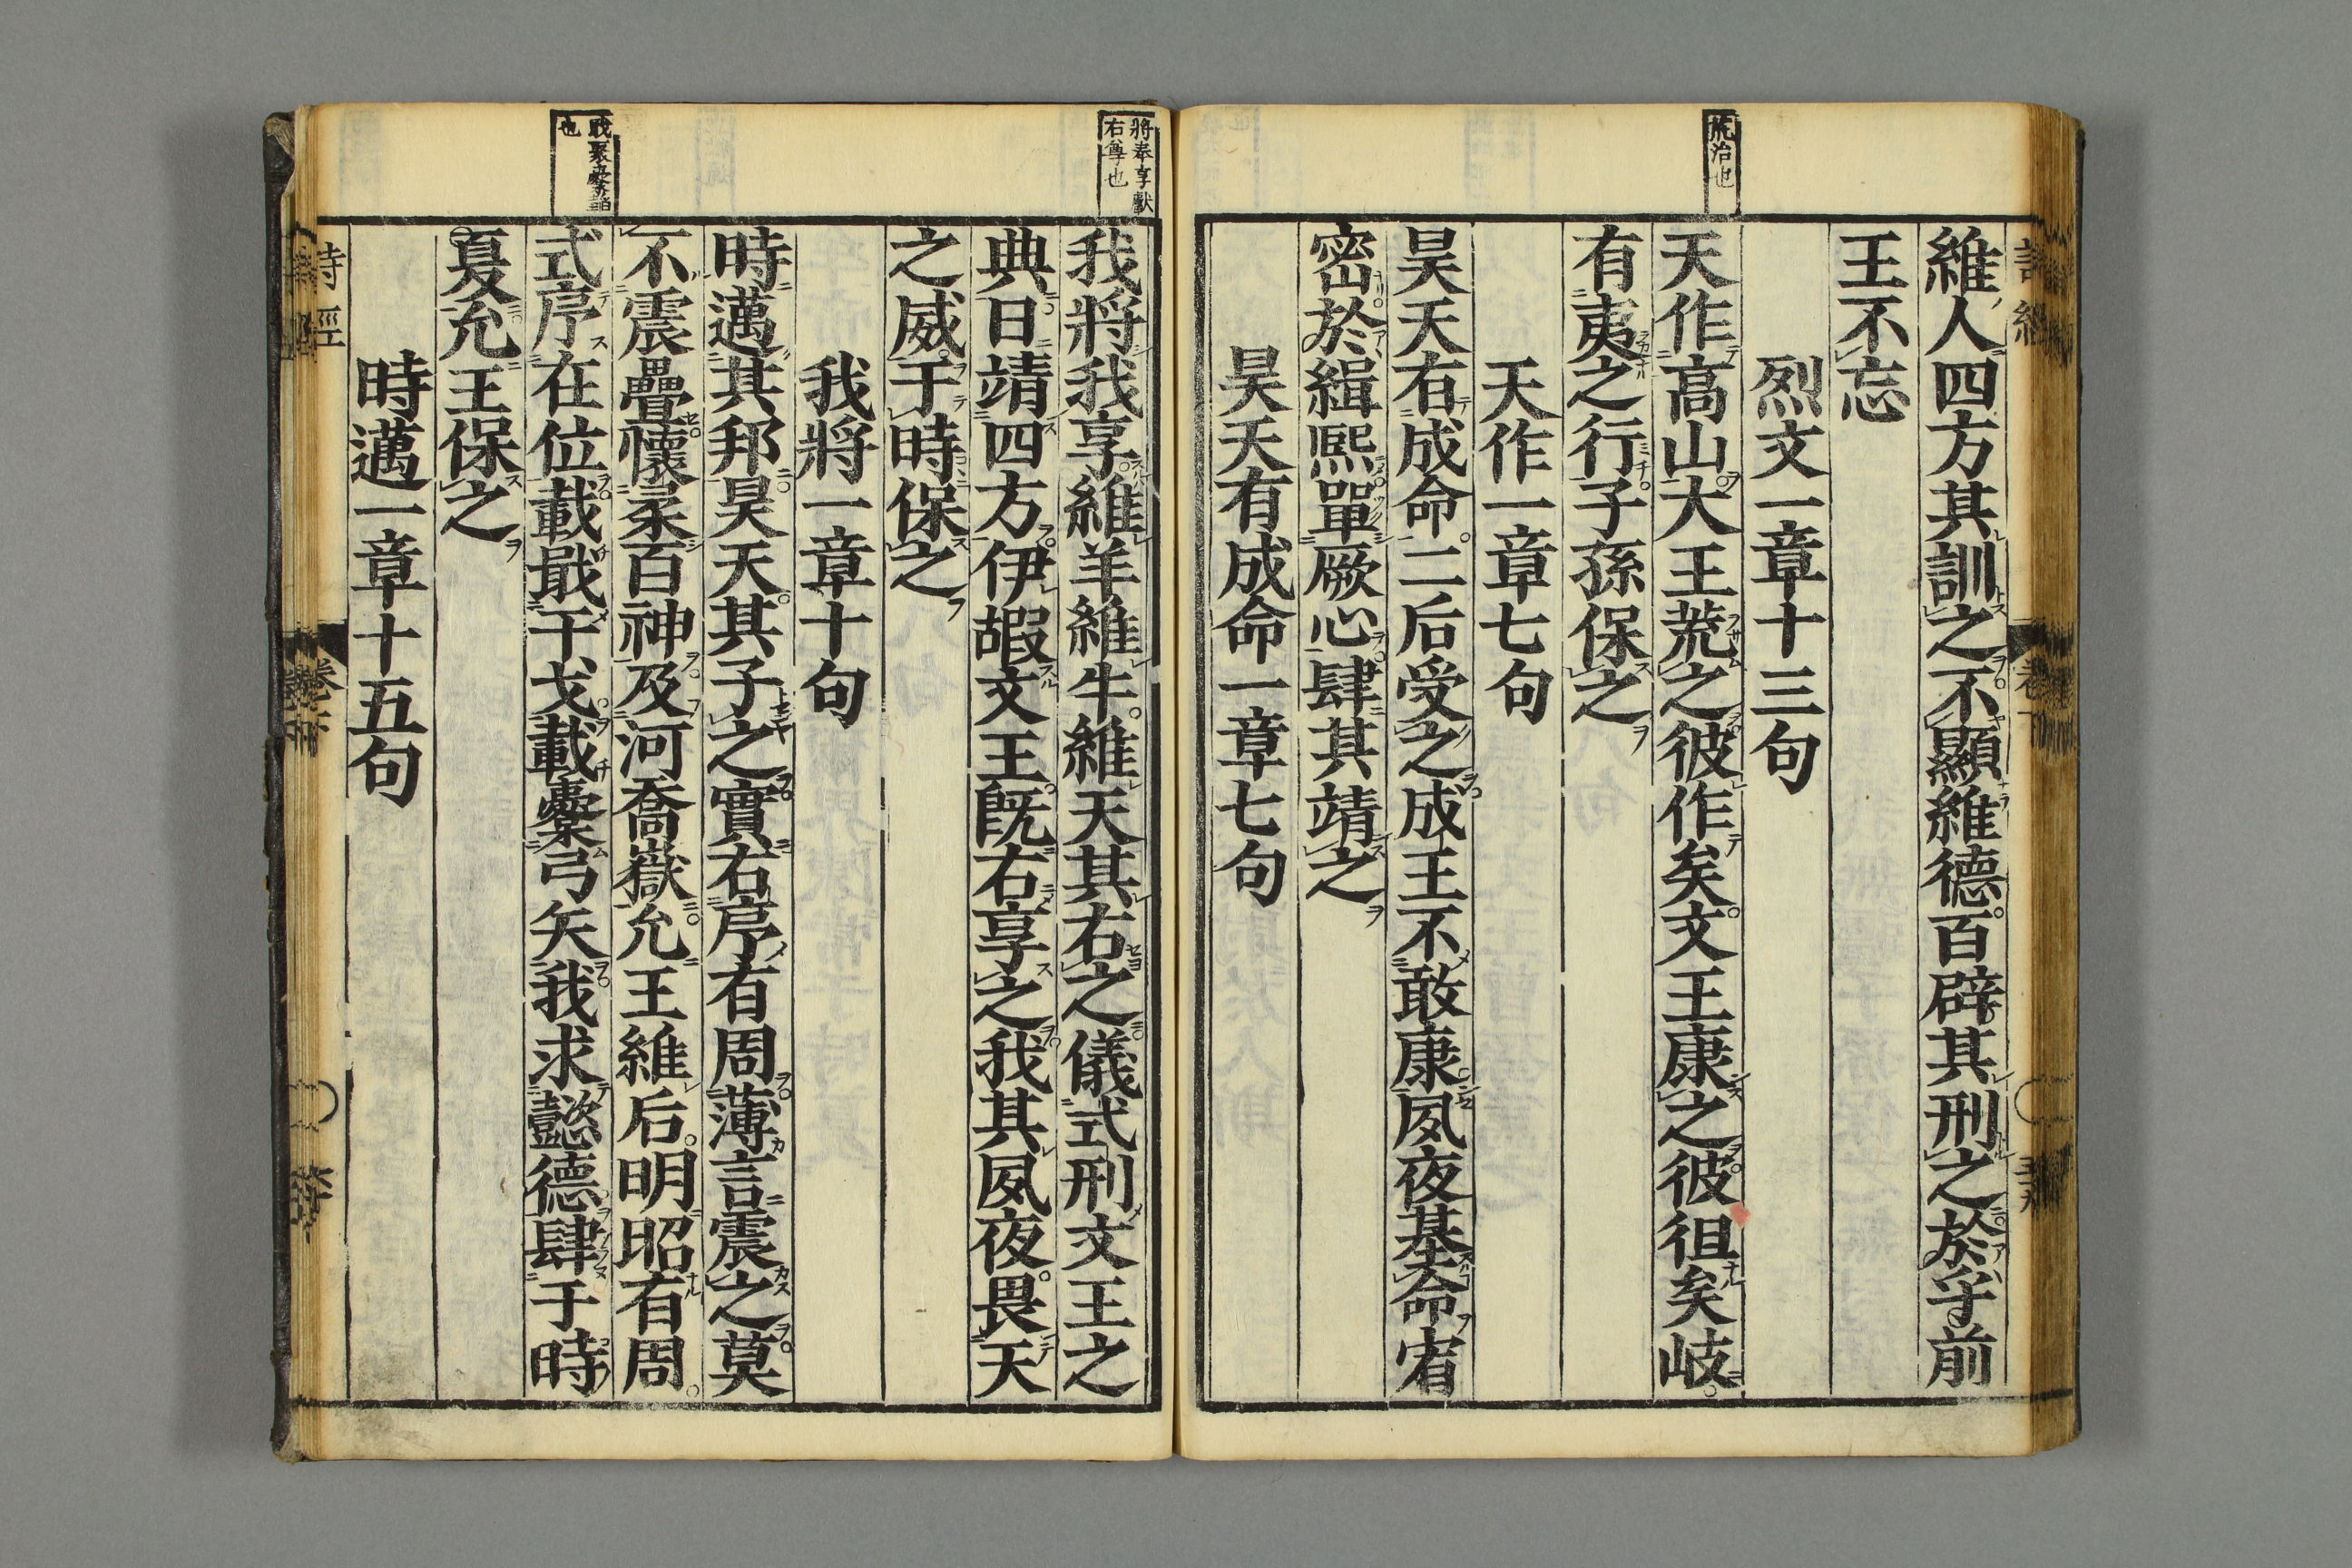 荒治也
維人四方其訓之不顯維德百辟其刑之於乎前
王不忘
烈文一章十三句
天作高山大王荒之彼作矣文王康之彼徂矣岐
有夷之行子孫保之
天作一章七句
昊天有成命二后受之成王不敢康夙夜基命宥
密於緝熙單厥心肆其靖之
昊天有成命一章七句
將奉享獻
右尊也
我將我享維羊維牛維天其右之儀式刑文王之
典日靖四方伊嘏文王既右享之我其夙夜畏天
之威于時保之
我將一章十句
戢聚櫜韜
也
時邁其邦昊天其子之實右序有周薄言震之莫
不震疊懷柔百神及河喬嶽允王維后明昭有周
式序在位載戢干戈載櫜弓矢我求懿德肆于時
夏允王保之
時邁一章十五句
詩經
卷